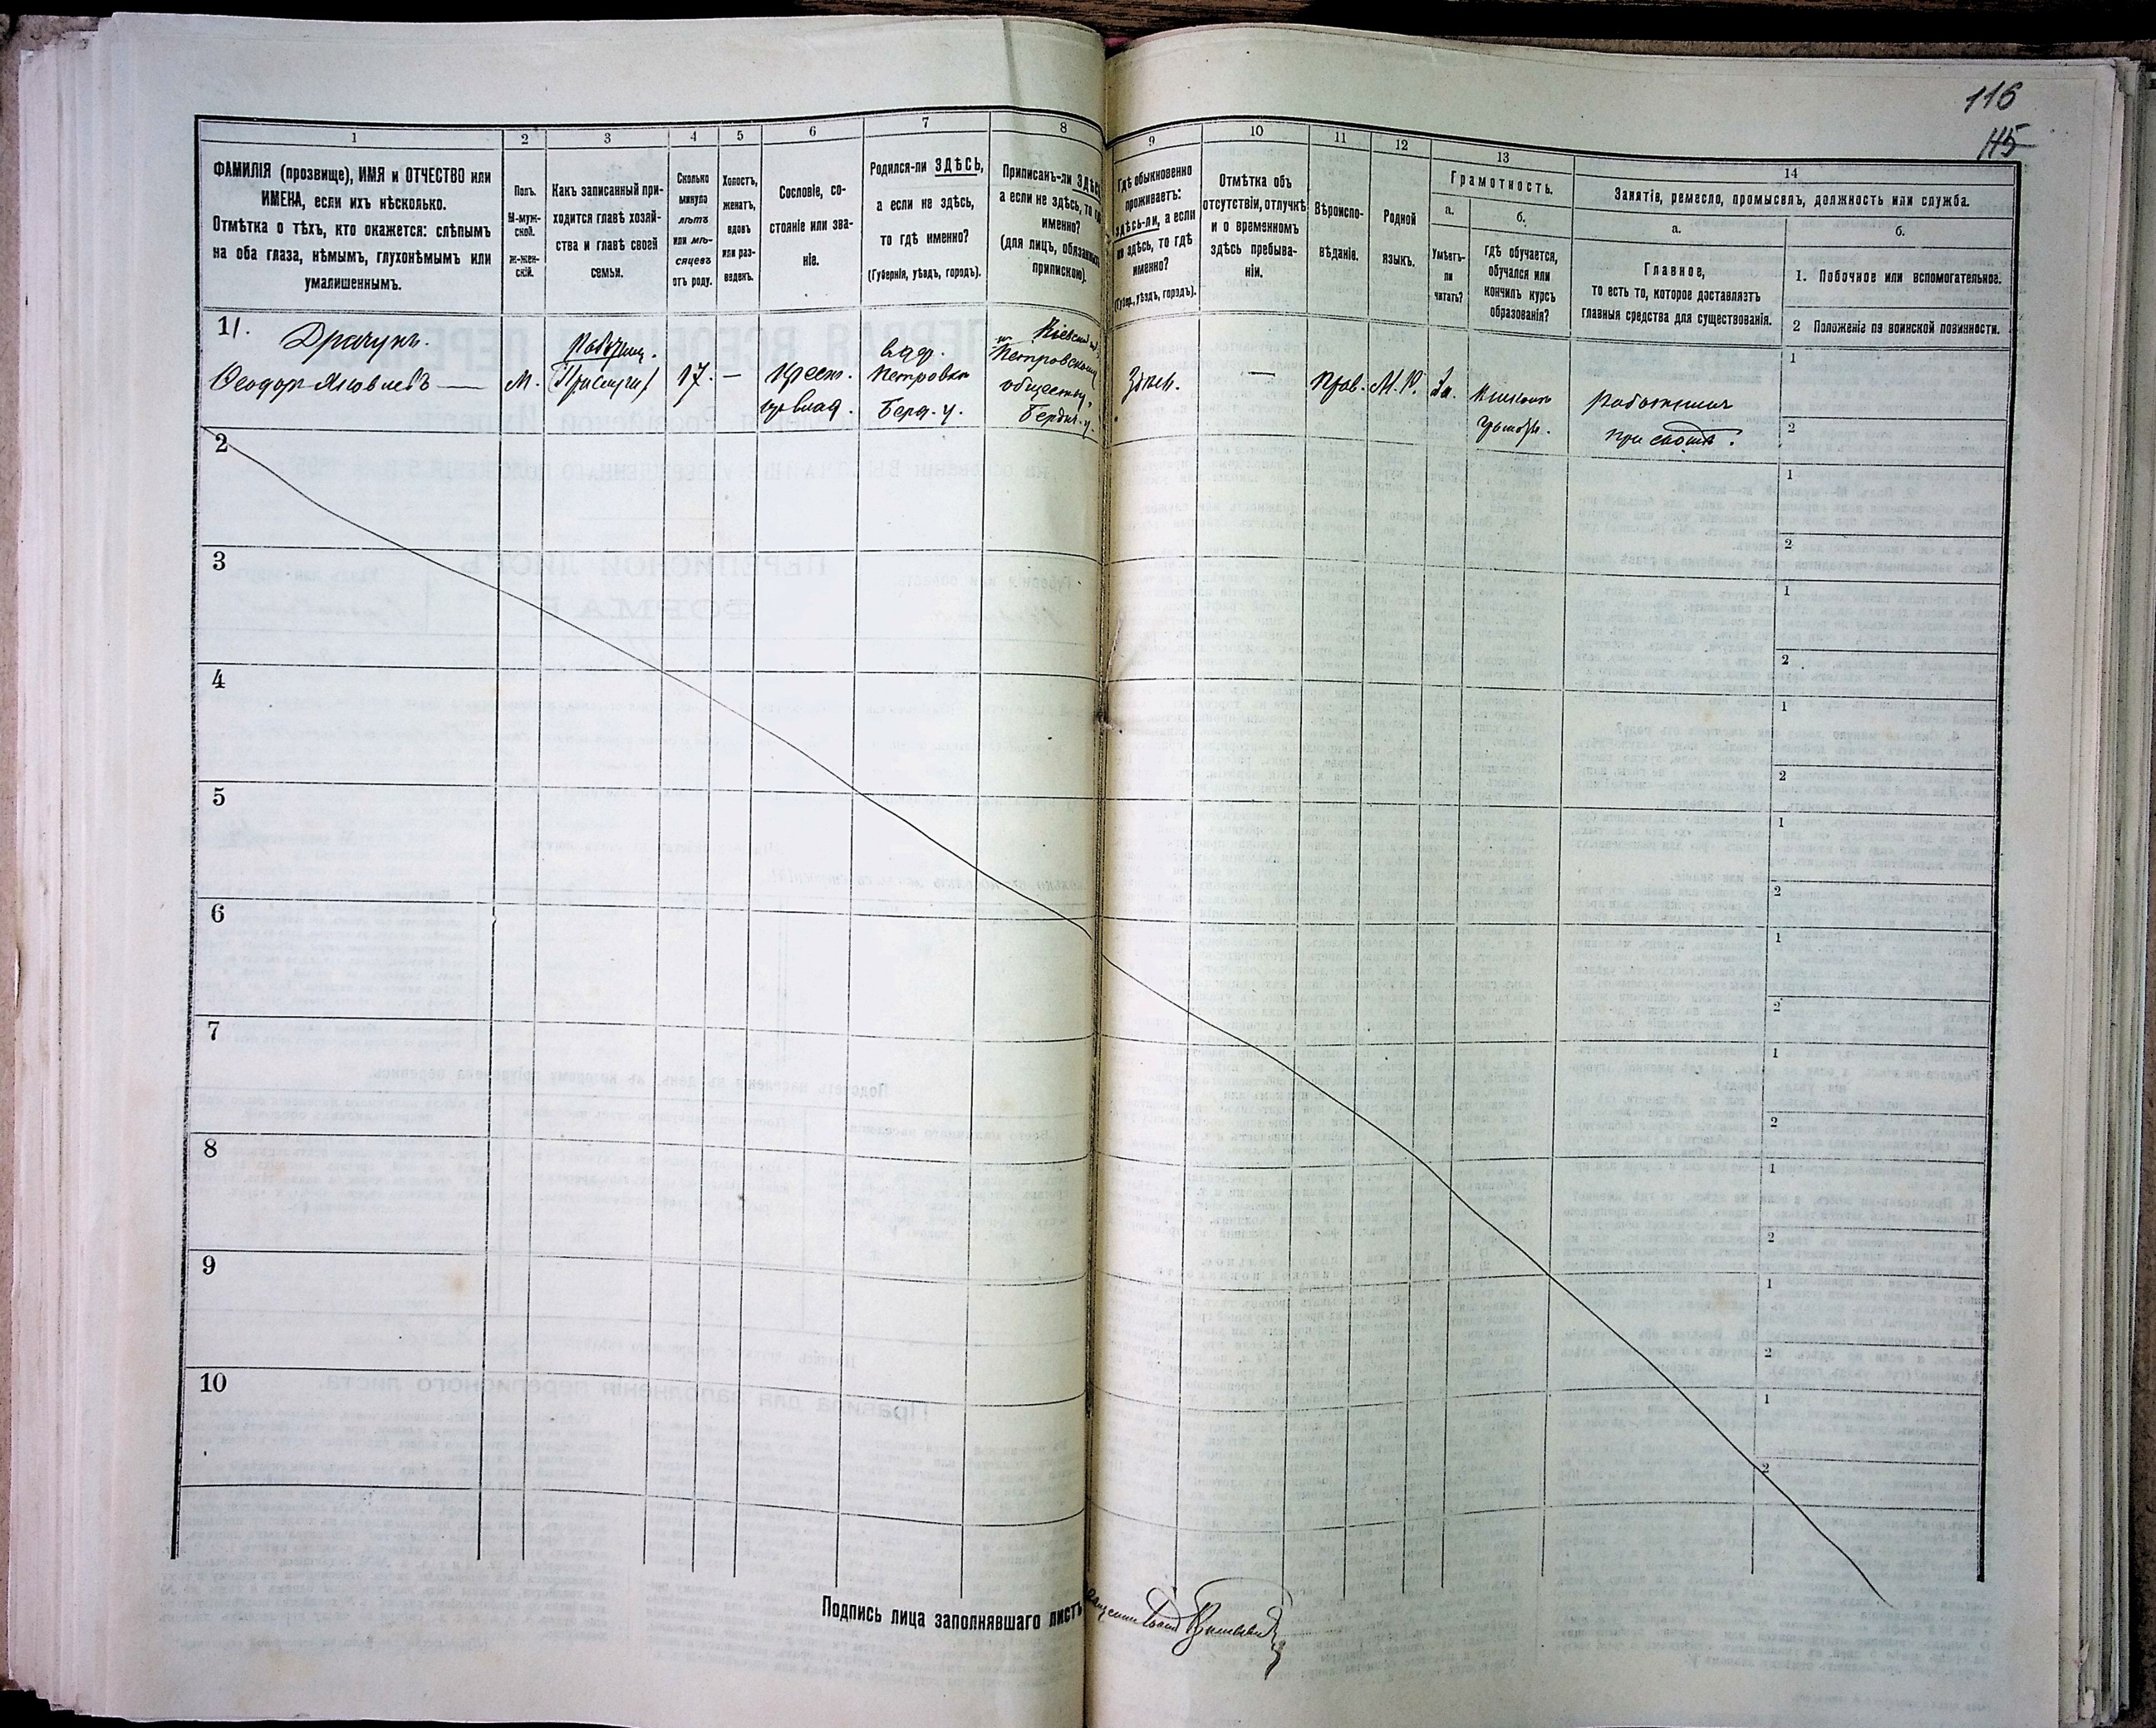 116
115
1
2
3
4
5
6
7
8
9
10
11
12
13
14
ФАМИЛІЯ (прозвище), ИМЯ и ОТЧЕСТВО или
ИМЕНА, если ихъ нѣсколько.
Отмѣтка о тѣхъ, кто окажется: слѣпымъ
на оба глаза, нѣмымъ, глухонѣмымъ или
умалишеннымъ.
Полъ.
М-муж-
ской.
ж-жен-
скій.
Какъ записанный при-
ходится главѣ хозяй-
ства и главѣ своей
семьи.
Сколько
минуло
лѣтъ
или мѣ-
сяцевъ
отъ роду.
Холостъ,
женатъ,
вдовъ
или раз-
веденъ.
Сословіе, со-
стояніе или зва-
ніе.
Родился-ли ЗДѢСЬ,
а если не здѣсь,
то гдѣ именно?
(Губернія, уѣздъ, городъ).
Приписанъ-ли ЗДѢСЬ
а если не здѣсь, то гдѣ
именно?
(для лицъ, обязанныхъ
припискою).
Гдѣ обыкновенно
проживаетъ:
здѣсь-ли, а если
не здѣсь, то гдѣ
именно?
(Губер., уѣздъ, городъ).
Отмѣтка объ
отсутствіи, отлучкѣ
и о временномъ
здѣсь пребыва-
ніи.
Вѣроиспо-
вѣданіе.
Родной
языкъ.
Грамотность.
а.
Умѣетъ-
ли
читать?
б.
гдѣ обучается,
обучался или
кончилъ курсъ
образованія?
Занятія, ремесло, промыселъ, должность или служба.
а.
Главное,
то есть то, которое доставляетъ
главныя средства для существованія.
б.
1. Побочное или вспомогательное.
2 Положеніе по воинской повинности.
1
Драчукъ.
Ѳеодоръ Яковлевъ —
М.
Работник.
(Прислуга)
17.
—
крест.
изъ влад.
влад.
Петровка
Берд. у.
Петровскому
обществу,
Бердич. у.
Здѣсь.
—
прав.
М. Р.
работникъ
при скотѣ.
1
2
2
1
2
3
1
2
4
1
2
5
1
2
6
1
2
7
1
2
8
1
2
9
1
2
10
1
2
Подпись лица заполнявшаго листъ